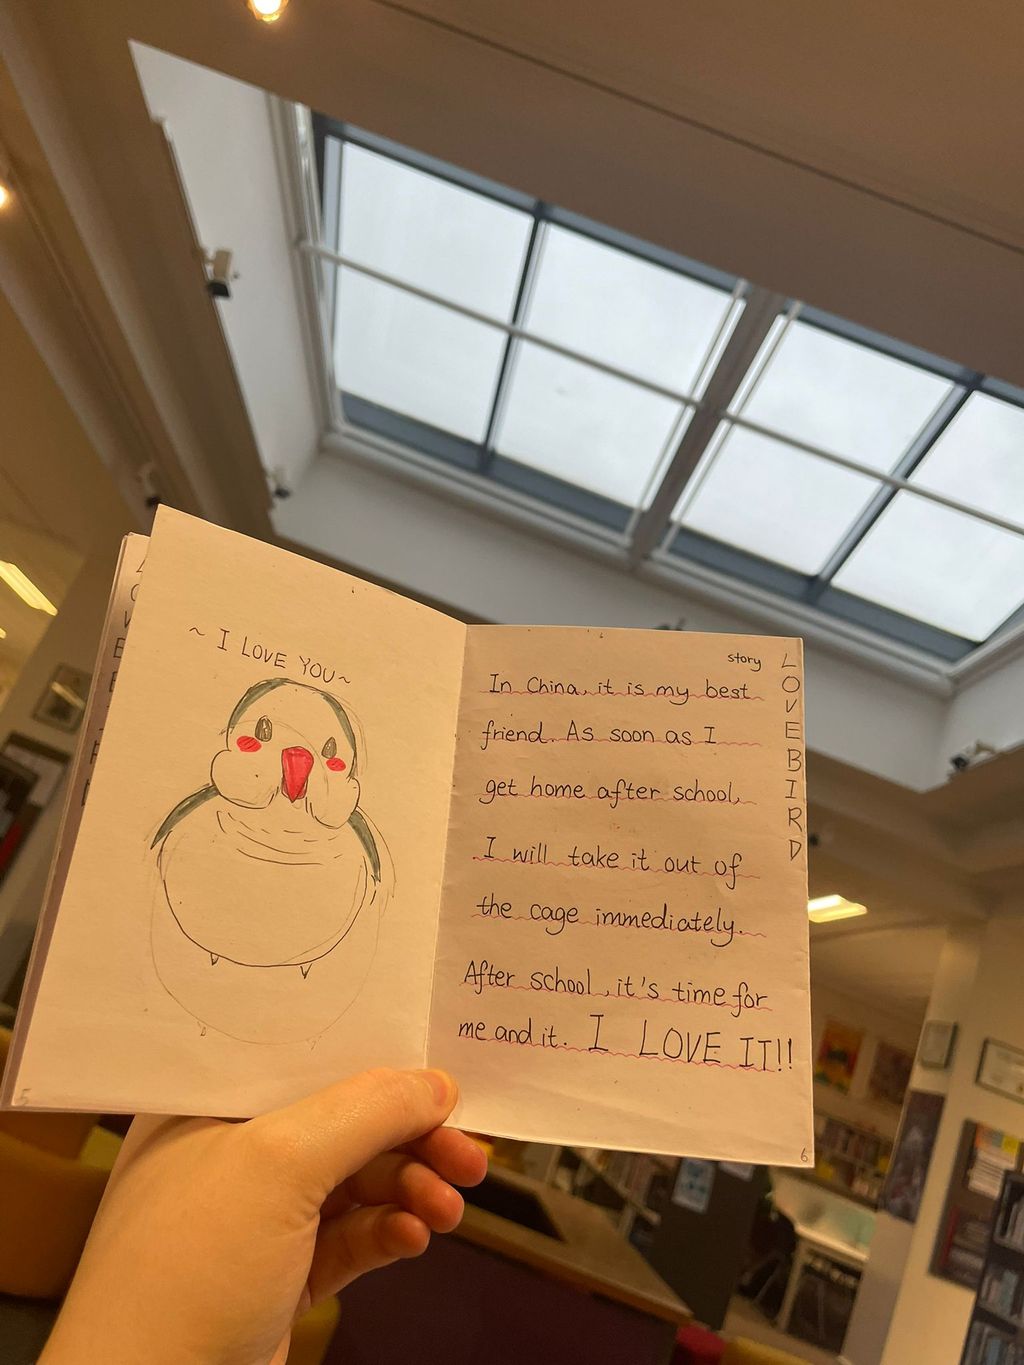 ~ I LOVE YOU ~
5
story
LOVEBIRD
In China, it is my best
friend. As soon as I
get home after school,
I will take it out of
the cage immediately.
After school, it's time for
me and it. I LOVE IT!!
6